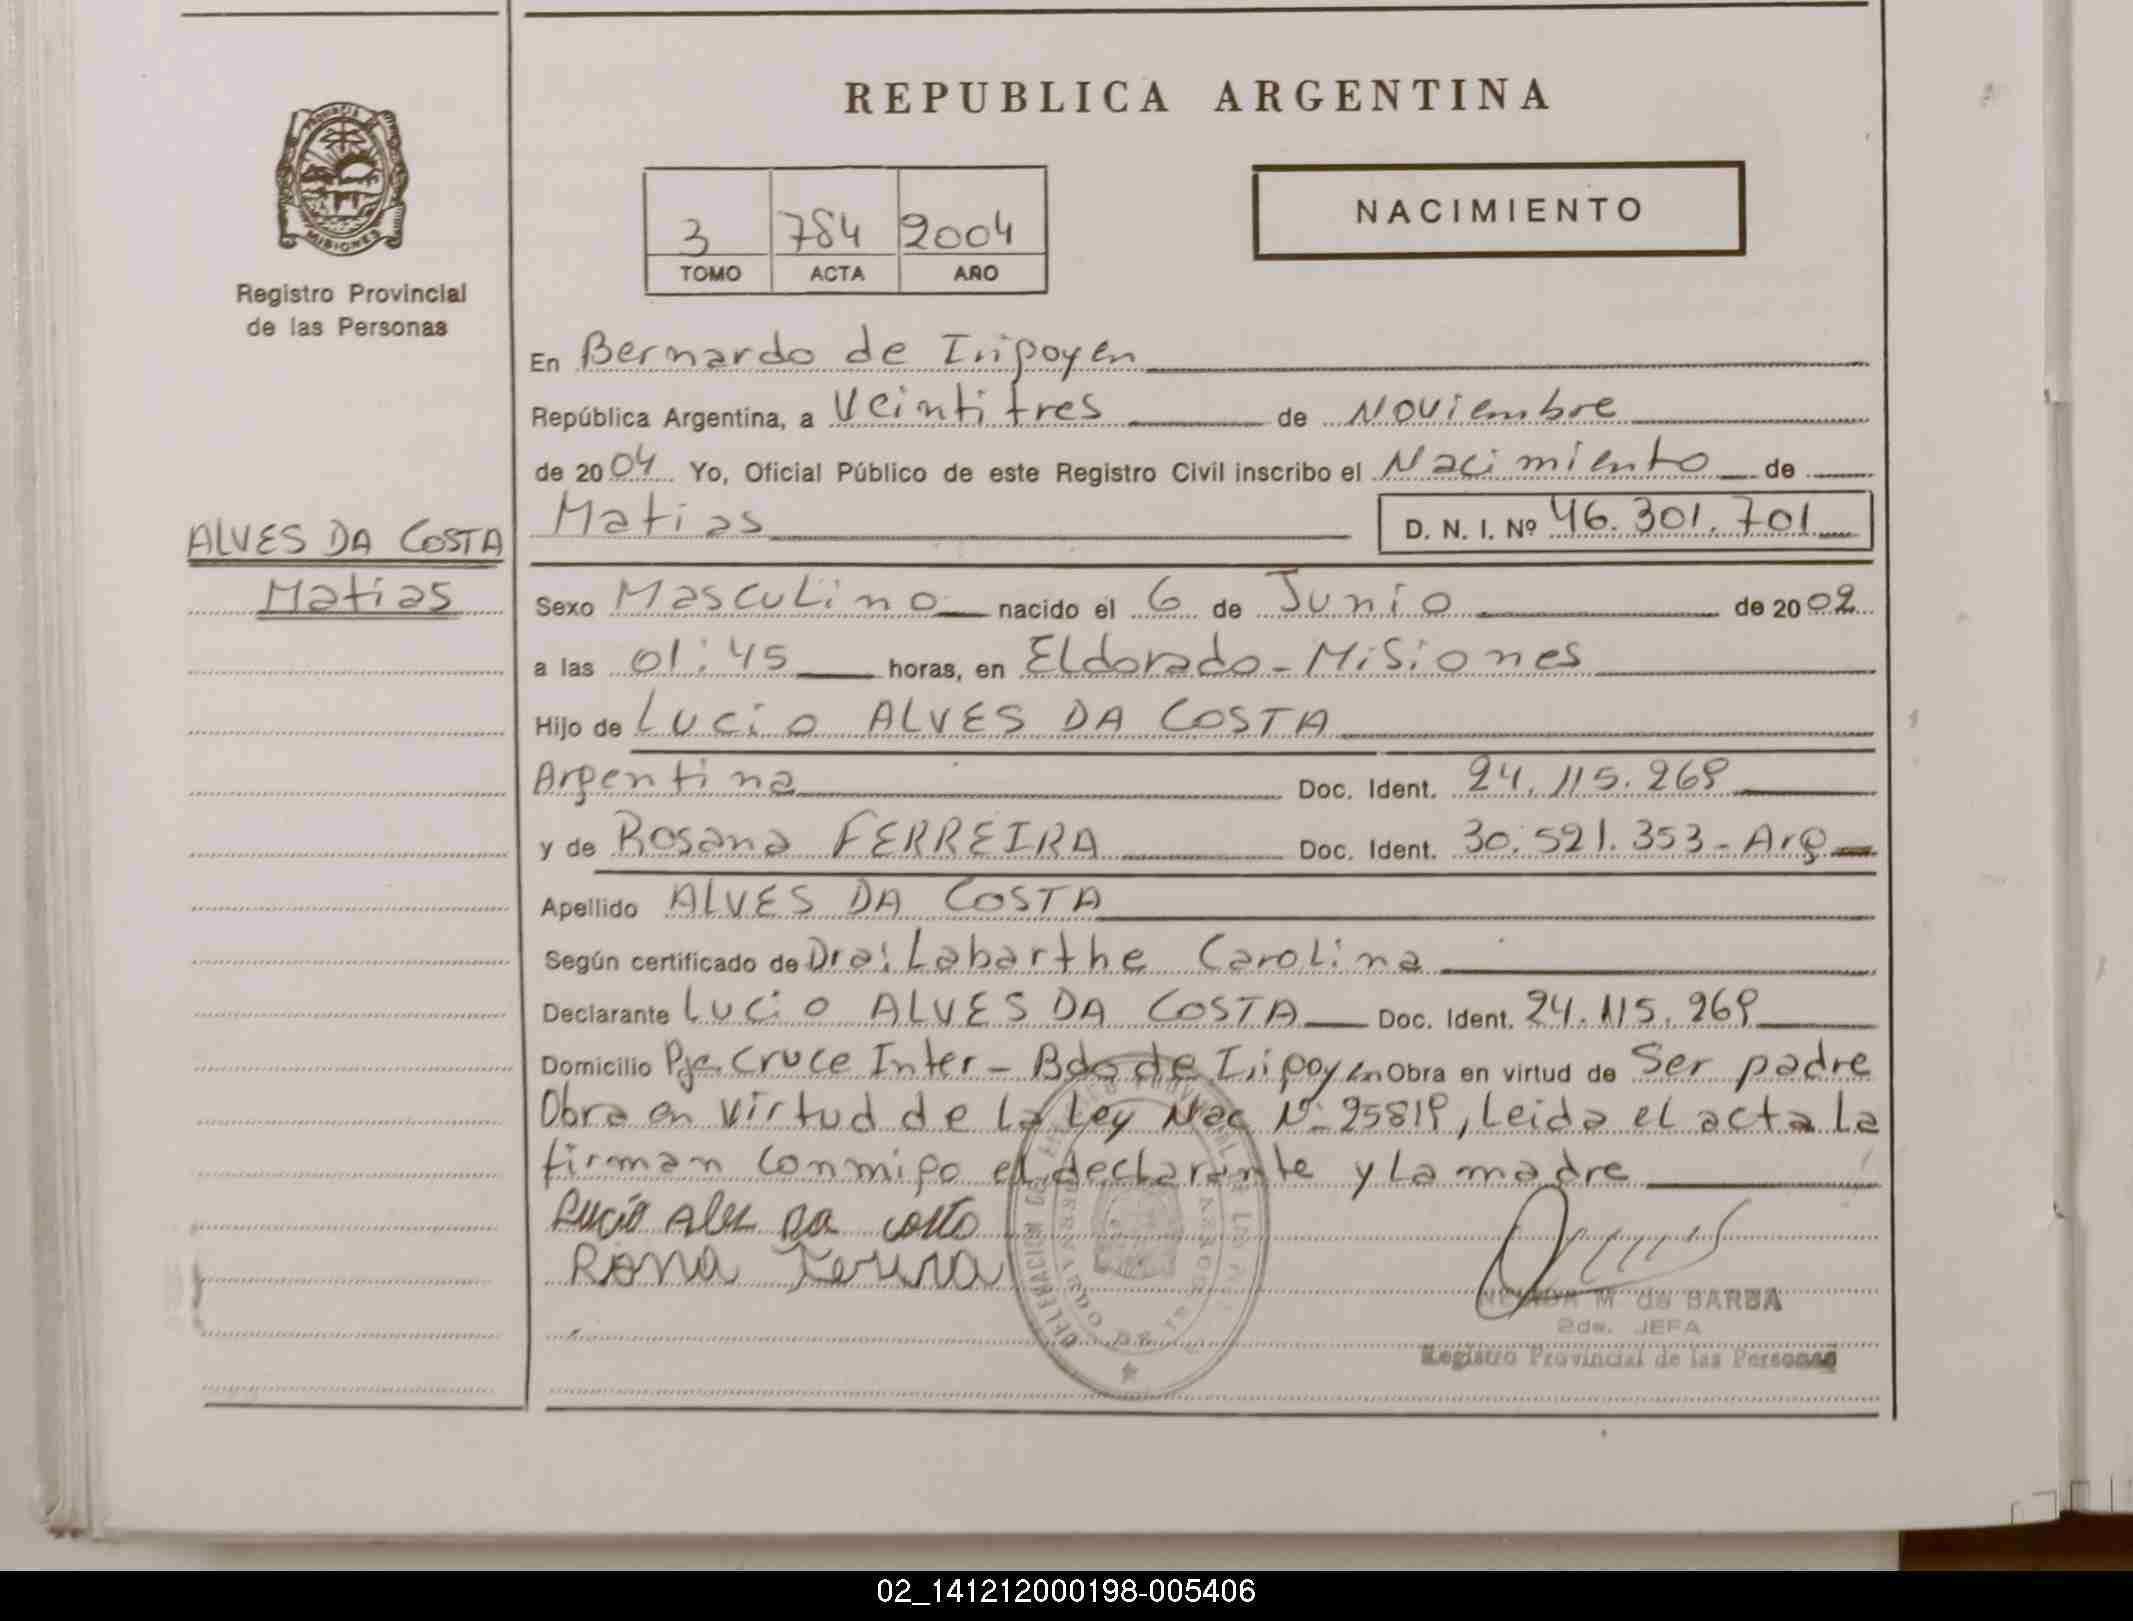 REPUBLICA ARGENTINA
PROVINCIA DE
MISIONES
Registro Provincial
de las Personas
3 784 2004
TOMO ACTA AÑO
NACIMIENTO
En Bernardo de Iripoyen
República Argentina, a Veintitres de Noviembre
de 2004 Yo, Oficial Público de este Registro Civil inscribo el Nacimiento de
Matias D. N. I. Nº 46.301.701
ALVES DA COSTA
Matias
Sexo Masculino nacido el 6 de Junio de 2002
a las 01:45 horas, en Eldorado - Misiones
Hijo de Lucio ALVES DA COSTA
Argentina Doc. Ident. 24.115.269
y de Rosana FERREIRA Doc. Ident. 30.521.353 - Arg
Apellido ALVES DA COSTA
Según certificado de Dra: Labarthe Carolina
Declarante Lucio ALVES DA COSTA Doc. Ident. 24.115.269
Domicilio Pje. Cruce Inter - Bdo de Iripoyen Obra en virtud de Ser padre
Obra en virtud de la Ley Nac Nº 25819, Leida el acta la
firman conmigo el declarante y la madre
Lucio Alves Da Costa
M. de BARBA
2da. JEFA
Registro Provincial de las Personas
02_141212000198-005406